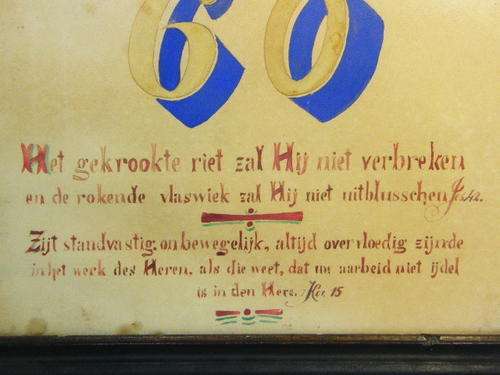 60
Het gekrookte riet zal Hij niet verbreken
en de rokende vlaswiek zal Hij niet uitblusschen Jes. 42.
Zijt standvastig. onbewegelijk, altijd overvloedig zijnde
in het werk des Heren. als die weet, dat uw aarbeid niet ijdel
is in den Here. Kor. 15